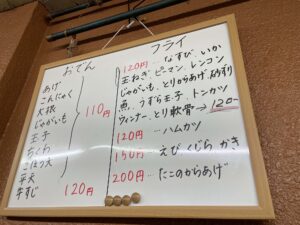 おでん
あげ
こんにゃく
大根
じゃがいも
玉子
ちくわ
ごぼう天
平天
110円
牛すじ 120円
フライ
120円 … なすび、いか
玉ねぎ、ピーマン、レンコン
じゃがいも、とりからあげ、砂ずり
魚、うずら玉子、トンカツ
ウィンナー、とり軟骨 → 120-
120円 … ハムカツ
150円 … えび くじら かき
200円 … たこのからあげ